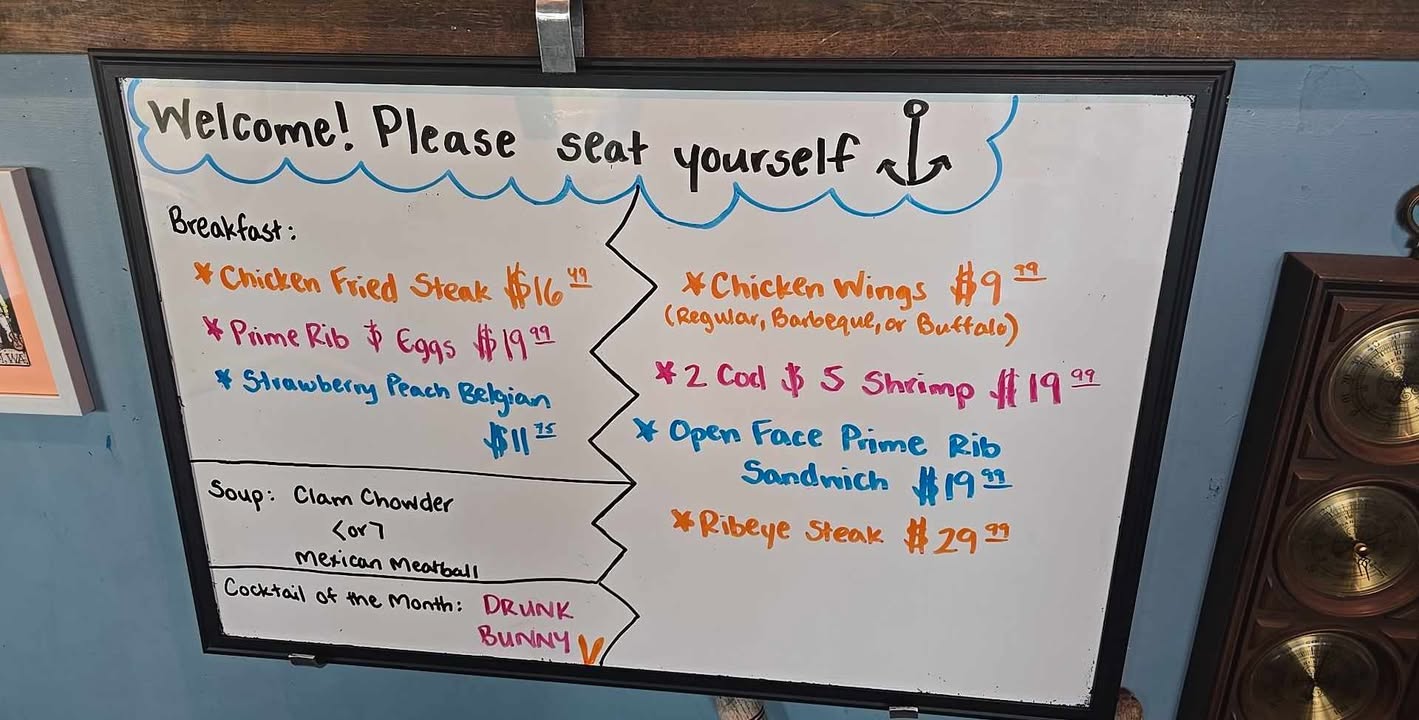 Welcome! Please seat yourself
Breakfast:
* Chicken Fried Steak $16 49
* Prime Rib $ Eggs $19 99
* Strawberry Peach Belgian
$11 75
Soup: Clam Chowder
<or7
Mexican Meatball
Cocktail of the Month: DRUNK
BUNNY
* Chicken Wings $9 99
(Regular, Barbeque, or Buffalo)
* 2 Cod $ 5 Shrimp $19 99
* Open Face Prime Rib
Sandwich $19 99
* Ribeye Steak $29 99